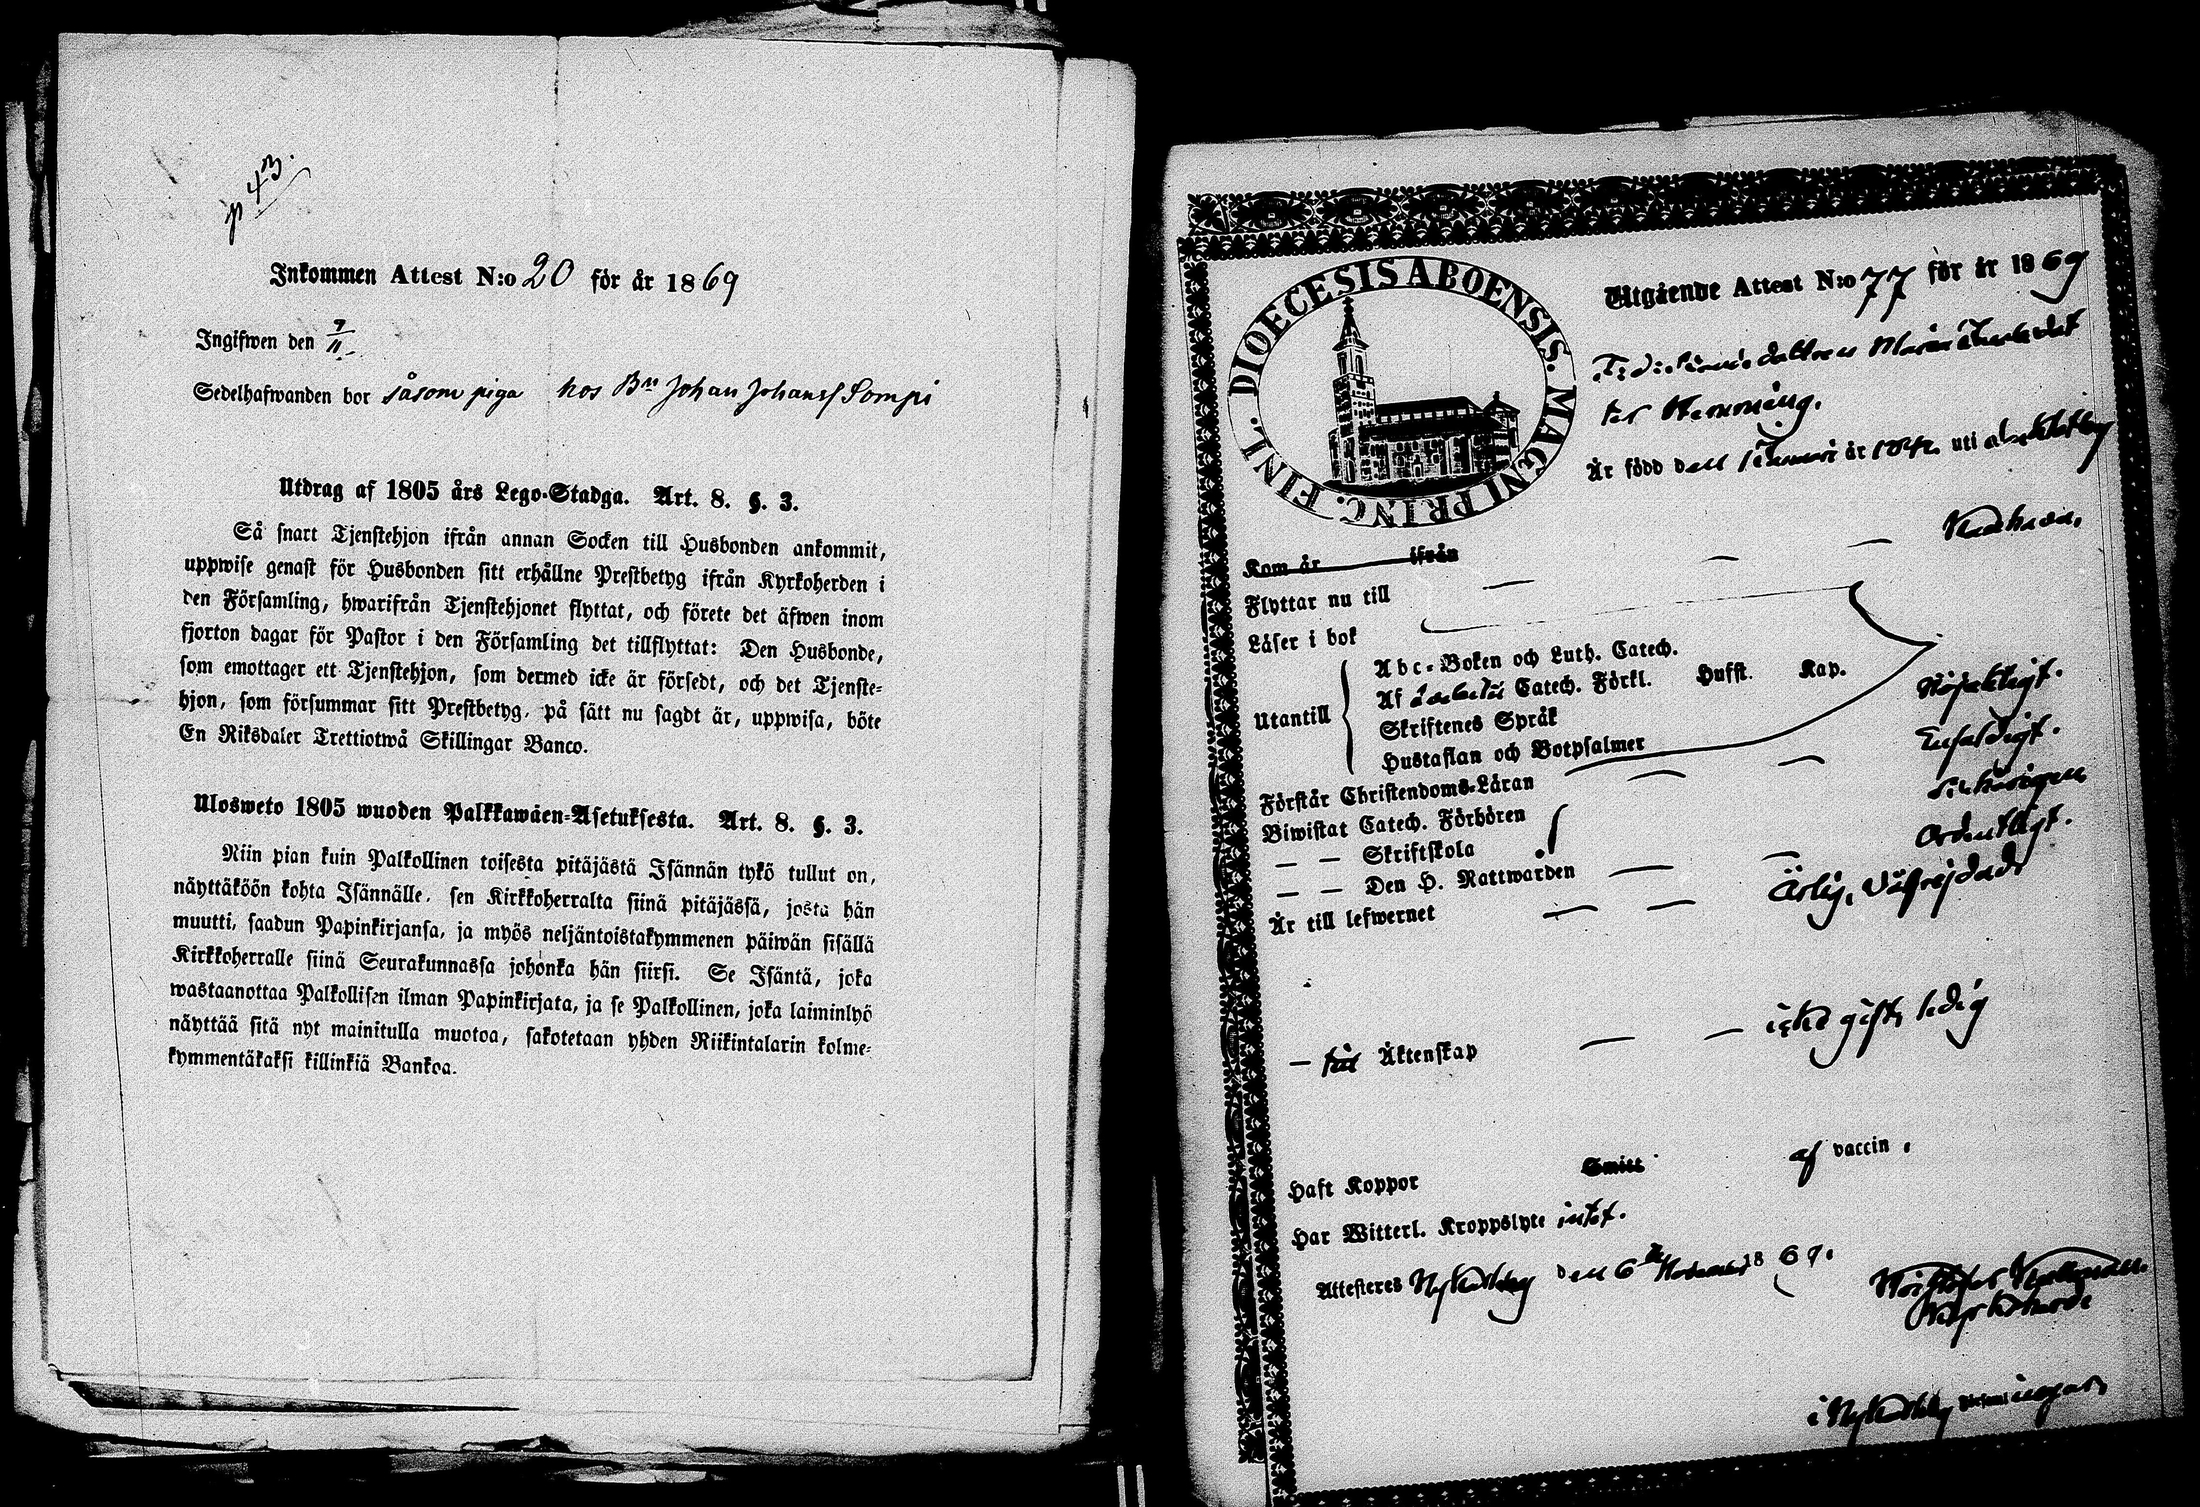 p 43.
Inkommen Attest N:o 20 för år 1869
Ingifwen den 9/11
Sedelhafwanden bor såsom piga hos Bn Johan Johanss Sompi
Utdrag af 1805 års Lego-Stadga. Art. 8. §. 3.
Så snart Tjenstehjon ifrån annan Socken till Husbonden ankommit,
uppwise genast för Husbonden sitt erhållne Prestbetyg ifrån Kyrkoherden i
den Församling, hwarifrån Tjenstehjonet flyttat, och förete det äfwen inom
fjorton dagar för Pastor i den Församling det tillflyttat: Den Husbonde,
som emottager ett Tjenstehjon, som dermed icke är försedt, och det Tjenste-
hjon, som försummar sitt Prestbetyg, på sätt nu sagdt är, uppwisa, böte
En Riksdaler Trettiotwå Skillingar Banco.
Ulosweto 1805 wuoden Palkkawäen-Asetuksesta. Art. 8. §. 3.
Niin pian kuin Palkollinen toisesta pitäjästä Isännän tykö tullut on,
näyttäköön kohta Isännälle, sen Kirkkoherralta siinä pitäjässä, josta hän
muutti, saadun Papinkirjansa, ja myös neljäntoistakymmenen päiwän sisällä
Kirkkoherralle siinä Seurakunnassa johonka hän siirsi. Se Isäntä, joka
wastaanottaa Palkollisen ilman Papinkirjata, ja se Palkollinen, joka laiminlyö
näyttää sitä nyt mainitulla muotoa, sakotetaan yhden Riikintalarin kolme-
kymmentäkaksi killinkiä Bankoa.
DIOECESIS ABOENSIS. MAGNI PRINC. FINL.
Utgående Attest N:o 77 för år 1869
Maria
ter Henning.
Är född den 1 Januari år uti
Kom år ifrån
Flyttar nu till
Läser i bok
Utantill
Abc-Boken och Luth. Catech.
Af Catech. Förkl. Hufst. Kap.
Skriftenes Språk
Hustaflan och Botpsalmer
Nöjaktigt.
Förstår Christendoms-Läran Enfaldigt.
Biwistat Catech. Förhören
— — Skriftskola
— — Den H. Nattwarden Ordentligt.
Är till lefwernet Ärlig, välfrejdad
— till Äktenskap icke gift, ledig
Haft Koppor Smitt af vaccin.
Har Witterl. Kroppslyte intet.
Attesteres Nykarleby den 6 November 1869.
i Nykarleby